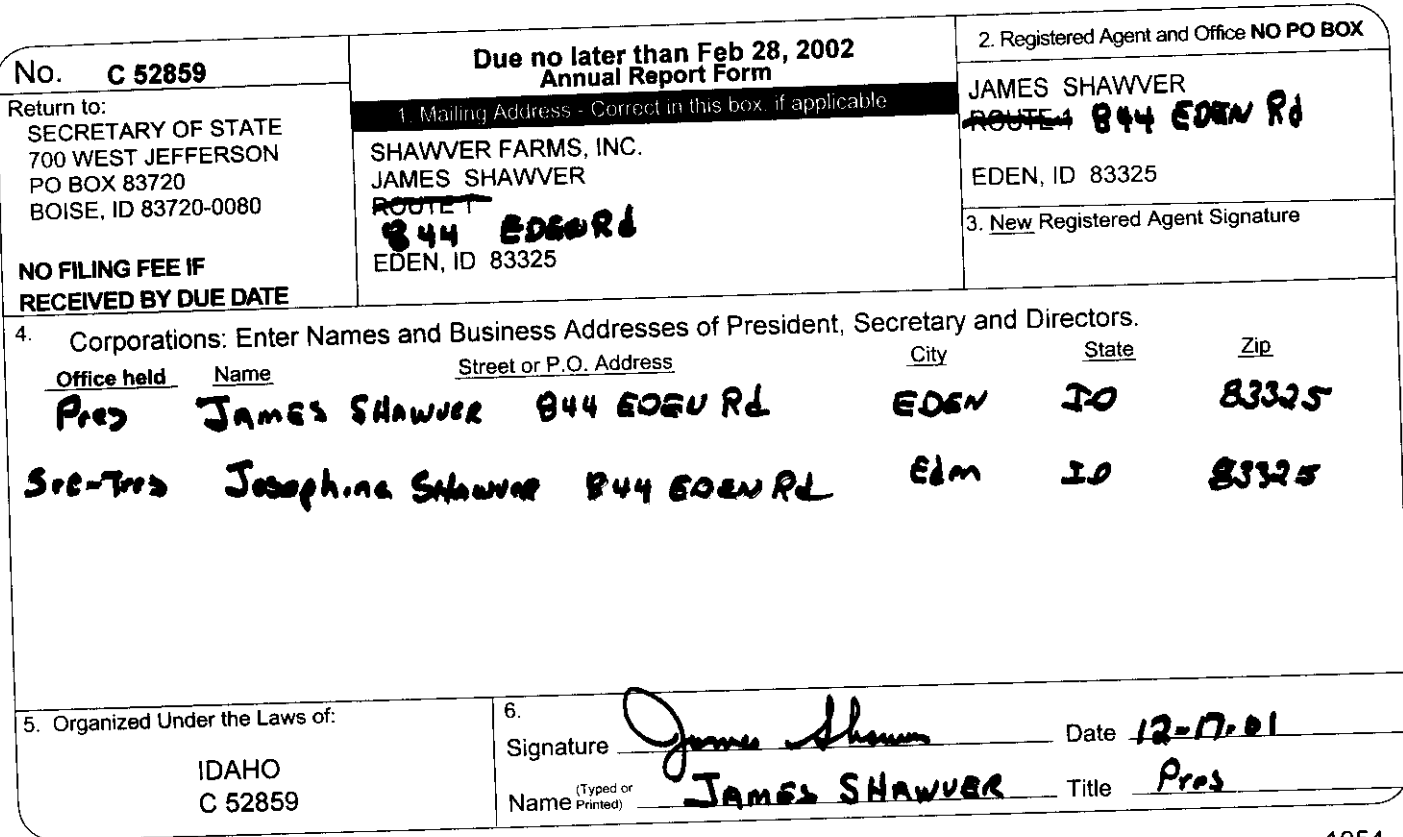 No. C 52859
Return to:
SECRETARY OF STATE
700 WEST JEFFERSON
PO BOX 83720
BOISE, ID 83720-0080
NO FILING FEE IF
RECEIVED BY DUE DATE
Due no later than Feb 28, 2002
Annual Report Form
1. Mailing Address - Correct in this box, if applicable
SHAWVER FARMS, INC.
JAMES SHAWVER
ROUTE 1
844 EDEN Rd
EDEN, ID 83325
2. Registered Agent and Office NO PO BOX
JAMES SHAWVER
ROUTE 1 844 EDEN Rd
EDEN, ID 83325
3. New Registered Agent Signature
4. Corporations: Enter Names and Business Addresses of President, Secretary and Directors.
Office held Name Street or P.O. Address City State Zip
Pres JAMES SHAWVER 844 EDEN Rd EDEN ID 83325
Sec-Tres Josephine SHAWVER 844 EDEN Rd Eden ID 83325
5. Organized Under the Laws of:
IDAHO
C 52859
6.
Signature James Shawver Date 12-17-01
Name (Typed or Printed) JAMES SHAWVER Title Pres